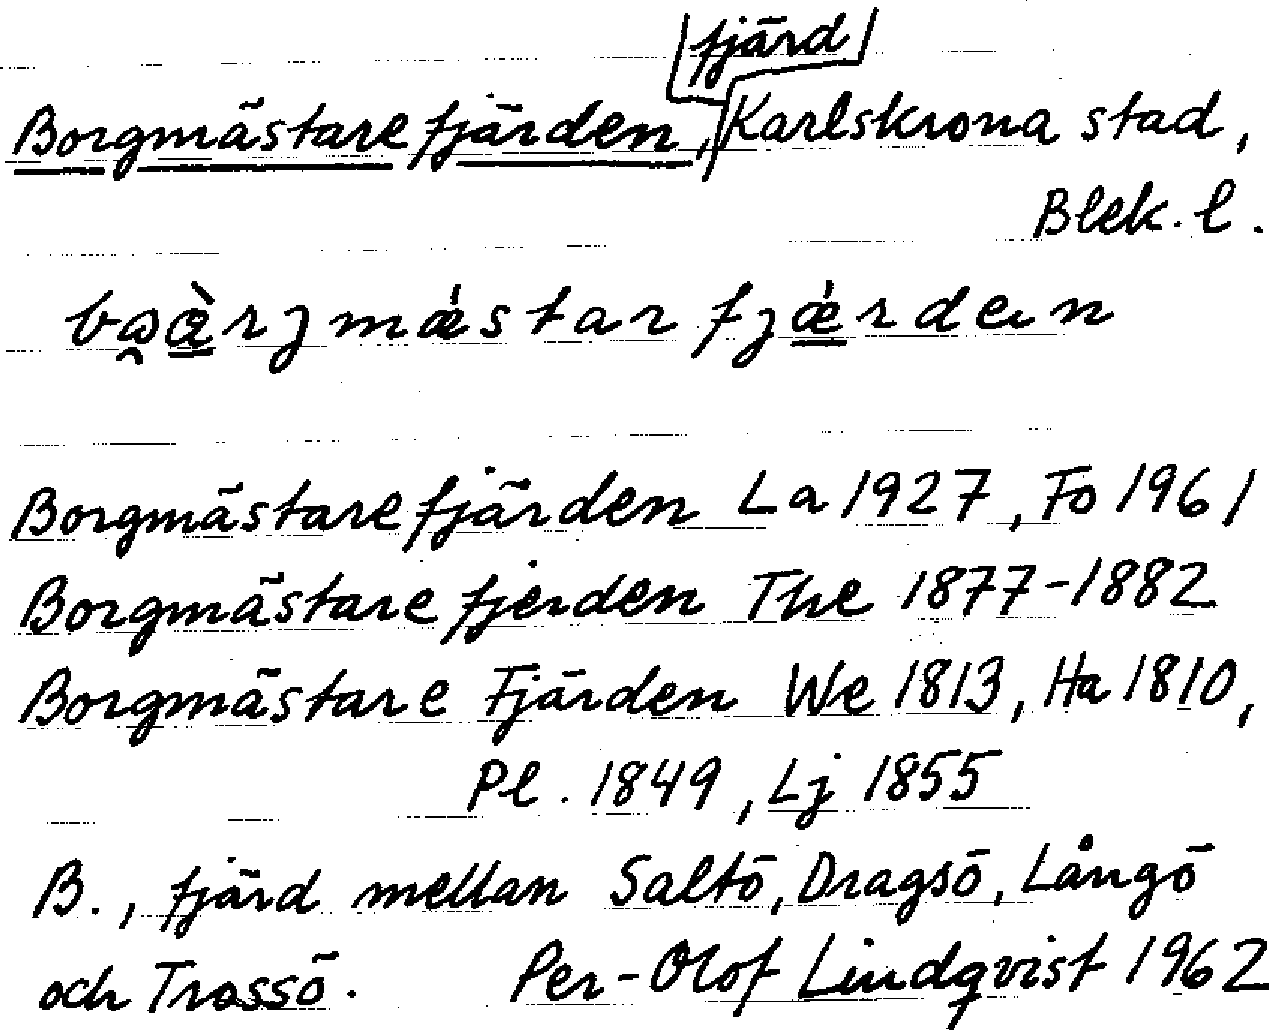 fjärd
Borgmästarefjärden, Karlskrona stad,
Blek. l.
bɷæ̀rjmǽstar fjǽrdən
Borgmästarefjärden La 1927, Fo 1961
Borgmästarefjerden The 1877-1882
Borgmästare Fjärden We 1813, Ha 1810,
Pl. 1849, Lj 1855
B., fjärd mellan Saltö, Dragsö, Långö
och Trossö. Per-Olof Lindqvist 1962